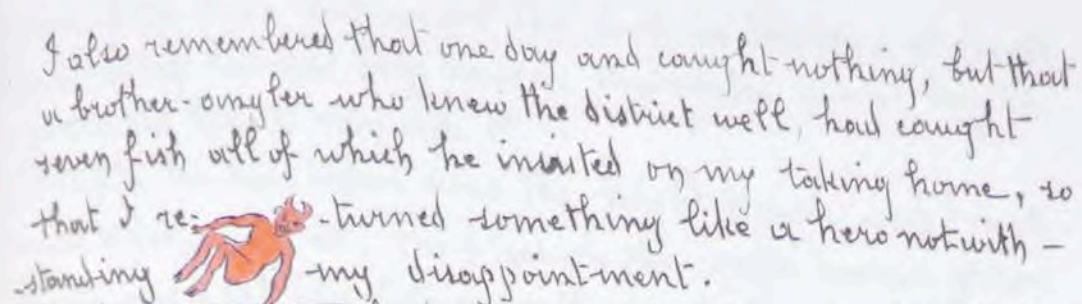 I also remembered that one day and caught nothing, but that
a brother-angler who knew the district well, had caught
seven fish all of which he insisted on my taking home, so
that I re- -turned something like a hero notwith-
-standing my disappointment.